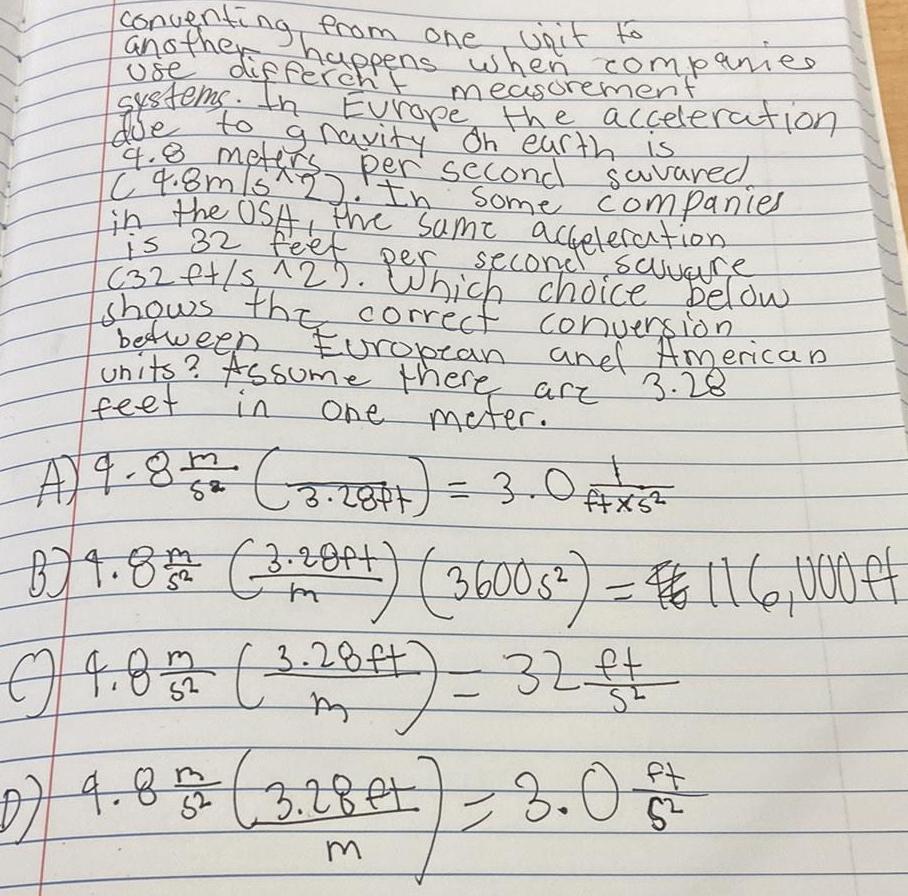 conventing from one unit to
another happens when companies
use different measurement
systems. In Europe the acceleration
due to gravity on earth is
9.8 meters per second squared
(9.8m/s^2). In some companies
in the USA, the same acceleration
is 32 feet per second square
(32 ft/s^2). Which choice below
shows the correct conversion
between European and American
units? Assume there are 3.28
feet in one meter.
A) 9.8 m/s² ( /3.28ft) = 3.0 1/ft×s²
B) 9.8 m/s² (3.28ft/m) (3600s²) = 116,000ft
C) 9.8 m/s² (3.28ft/m) = 32 ft/s²
D) 9.8 m/s² (3.28ft/m) = 3.0 ft/s²